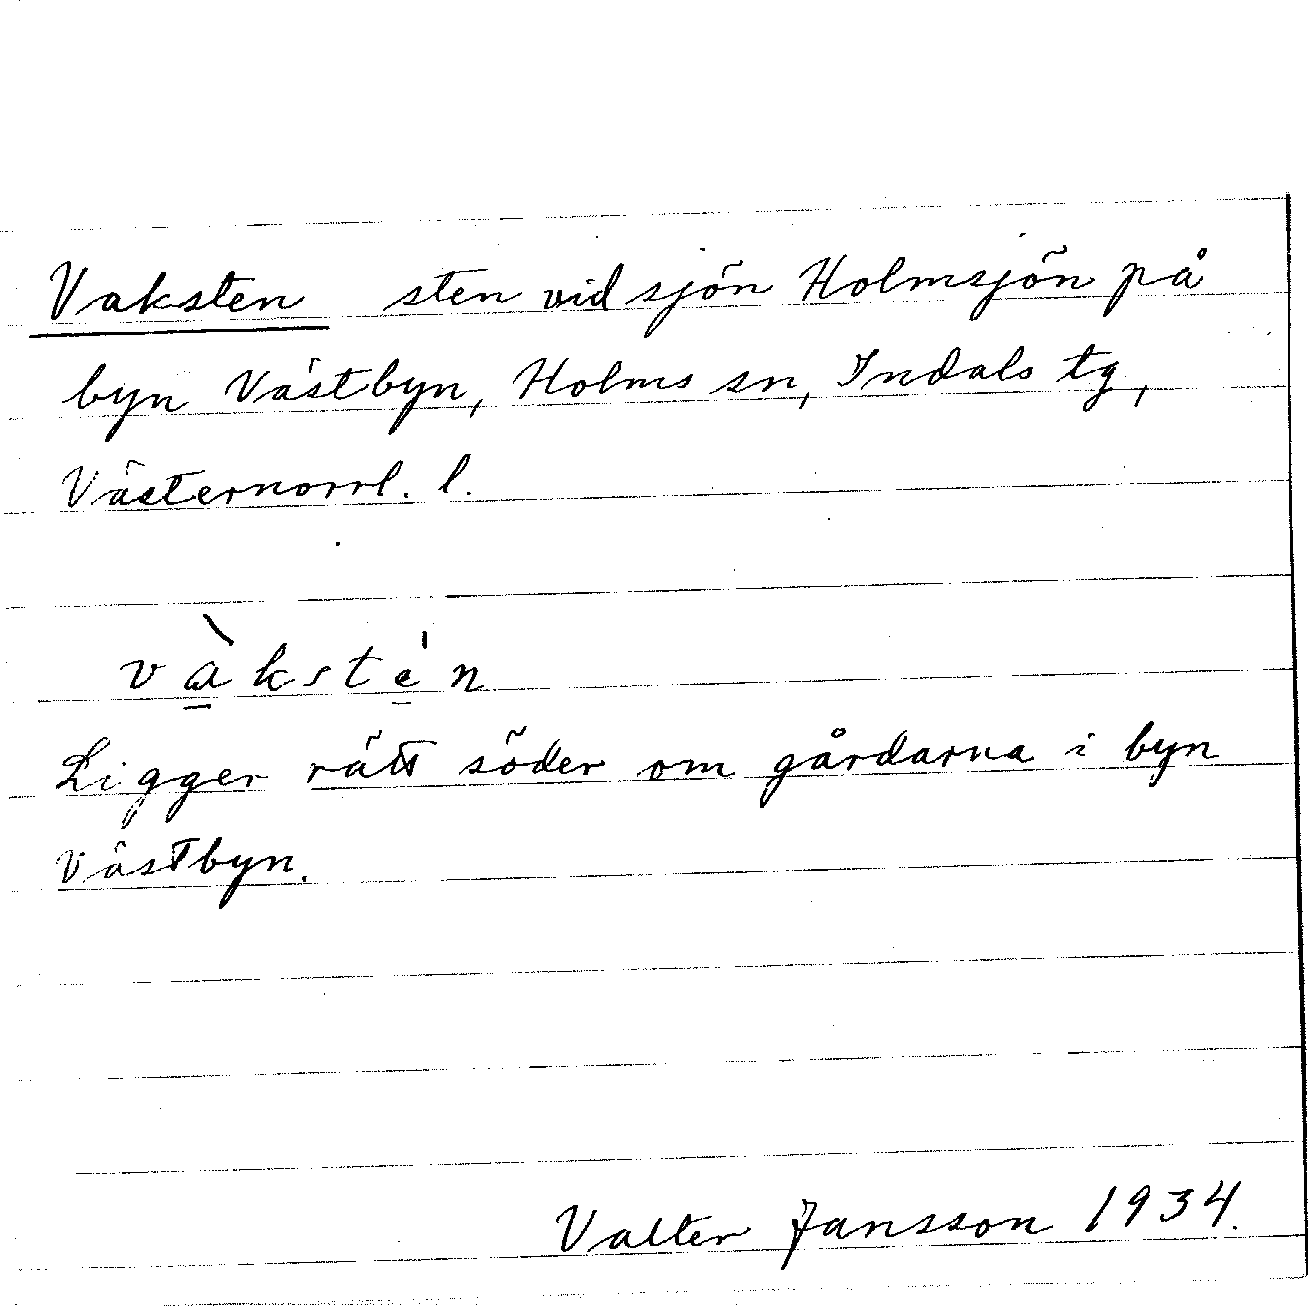 Vaksten sten vid sjön Holmsjön på
byn Västbyn, Holms sn, Indals tg,
Västernorrl. l.
vàkstén
Ligger rätt söder om gårdarna i byn
Västbyn.
Valter Jansson 1934.